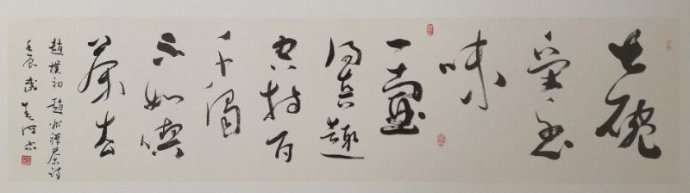 七碗
受至
味
一壶
得真趣
空持百
千偈
不如吃
茶去
趙樸初題趙州禅茶诗
壬辰